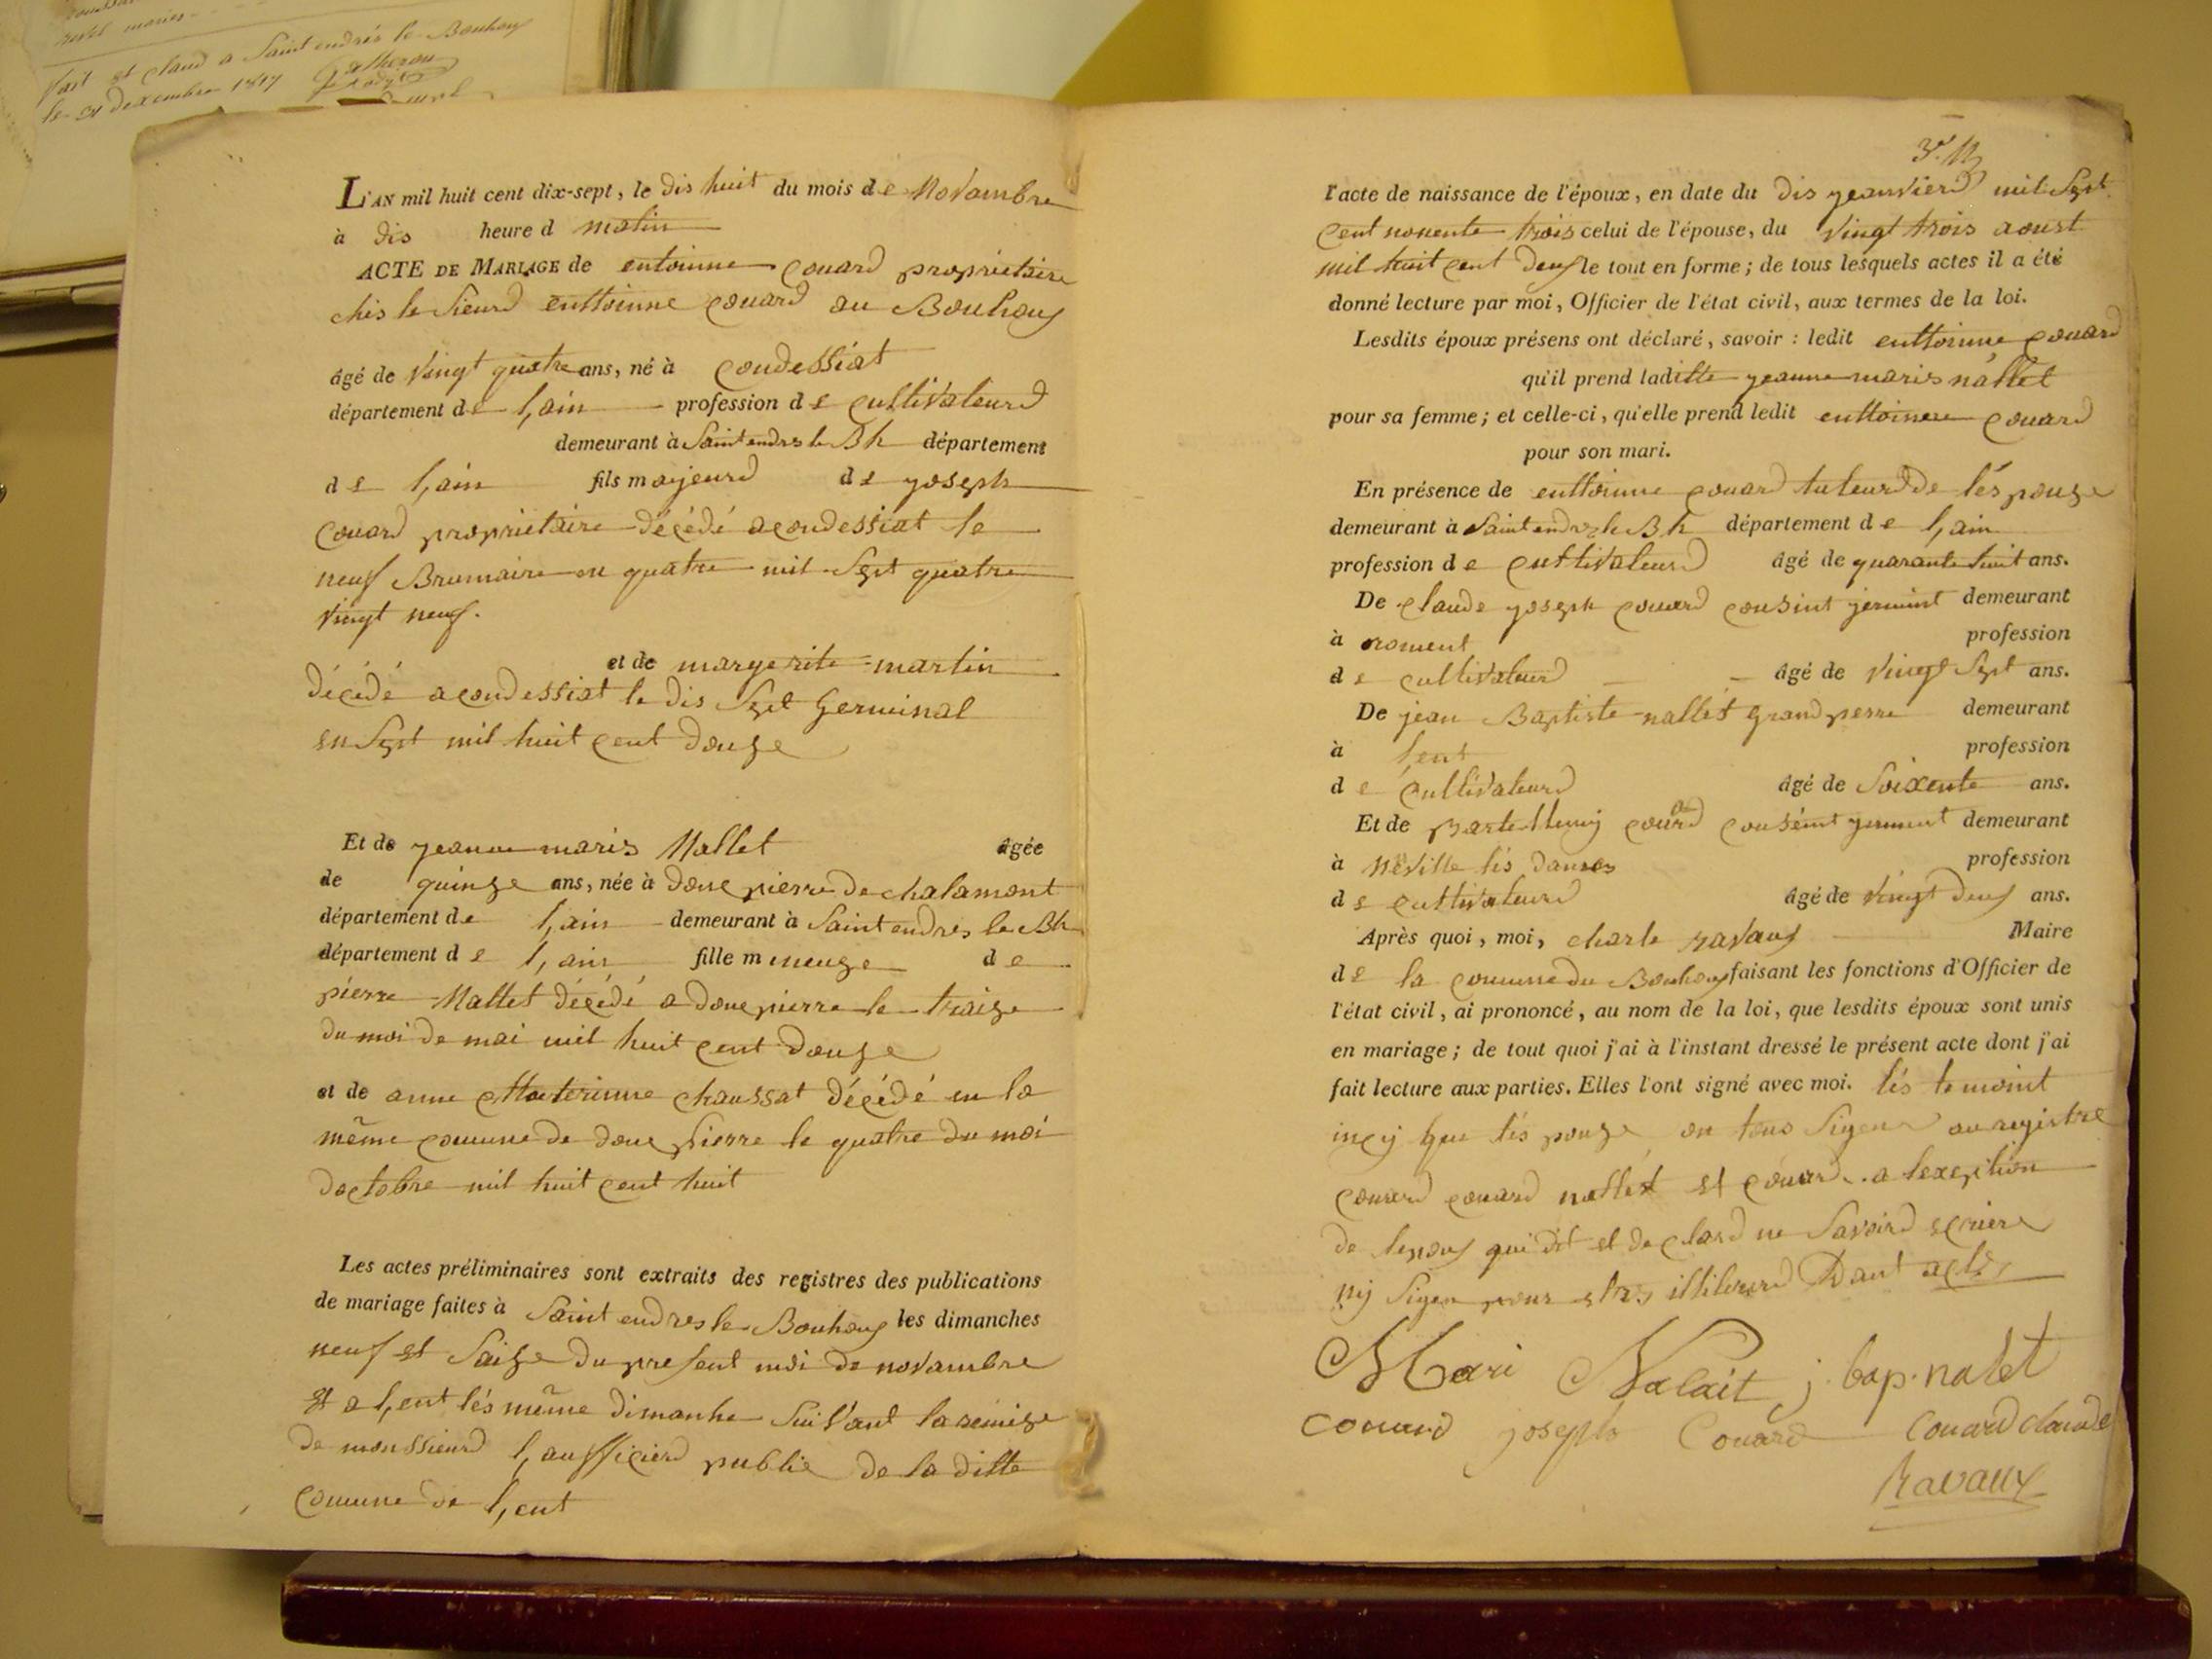 mariés
fait et claud a Saint endrés le Bouhoux
le 31 dexembre 1817
L'AN mil huit cent dix-sept, le dis huit du mois de Novambre
à dis heure d matin
ACTE DE MARIAGE de entoinne Couard propriétaire
chés le Sieurd enttoinne Couard au Bouhoux
âgé de vingt quatre ans, né à Condessiat
département de l,ain profession de Cultivateurd
demeurant à Saint endres le Bh département
de l,ain fils majeurd de yoseph
Couard propriétaire décédé a condessiat le
neuf Brumaire en quatre mil Sept quatre
vingt neuf.
et de margerite martin
décédé a condessiat le dis Sept Germinal
en Sept mil huit cent douze
Et de yeanne maris Nallet âgée
de quinze ans, née à done pierre de chalamont
département de l,ain demeurant à Saint endres le Bh
département de l,ain fille mineuze de
pierre Nallet décédé a done pierre le traize
du moi de mai mil huit cent douze
et de anne Katerinne chaussat décédé en la
même comune de done pierre le quatre du moi
doctobre mil huit cent huit
Les actes préliminaires sont extraits des registres des publications
de mariage faites à Saint endres le Bouhoux les dimanches
neuf et Saize du present moi de novambre
et a l,ent lés même dimanhe Suivant la remise
de monssieurd l,aufficierd publie de la ditte
Comune de l,ent
3e. N
l'acte de naissance de l'époux, en date du dis yeanvierd mil Sept
Cent nonente trois celui de l'épouse, du vingt trois aoust
mil huit cent deux le tout en forme; de tous lesquels actes il a été
donné lecture par moi, Officier de l'état civil, aux termes de la loi.
Lesdits époux présens ont déclaré, savoir : ledit enttoinne Couard
qu'il prend laditte yeanne maris nallet
pour sa femme; et celle-ci, qu'elle prend ledit enttoinne Couard
pour son mari.
En présence de enttoinne Couard tuteurd de lés pouze
demeurant à Saint endres le Bh département de l,ain
profession de Cultivateurd âgé de quarante huit ans.
De claude yoseph Couard cousint jermint demeurant
à roment profession
de cultivateurd âgé de vingt Sept ans.
De jean Baptiste nallet grand perre demeurant
à l,ent profession
de Cultivateurd âgé de Soixente ans.
Et de Bartellemy Couard cousint jermint demeurant
à neville lés dames profession
de cultivateurd âgé de vingt deux ans.
Après quoi, moi, charle ravaux Maire
de la comune du Bouhoux faisant les fonctions d'Officier de
l'état civil, ai prononcé, au nom de la loi, que lesdits époux sont unis
en mariage; de tout quoi j'ai à l'instant dressé le présent acte dont j'ai
fait lecture aux parties. Elles l'ont signé avec moi. lés temoint
incy que lés pouze on tous Signer au registre
Couard Couard nallet et Couard a lexeption
de lepoux qui dit et declard ne Savoird ecriere
ny Signer pour etres illiterrerd Dant acte
Mari Nalait j. bap. nalet
Couard joseph Couard Couard claude
Ravaux